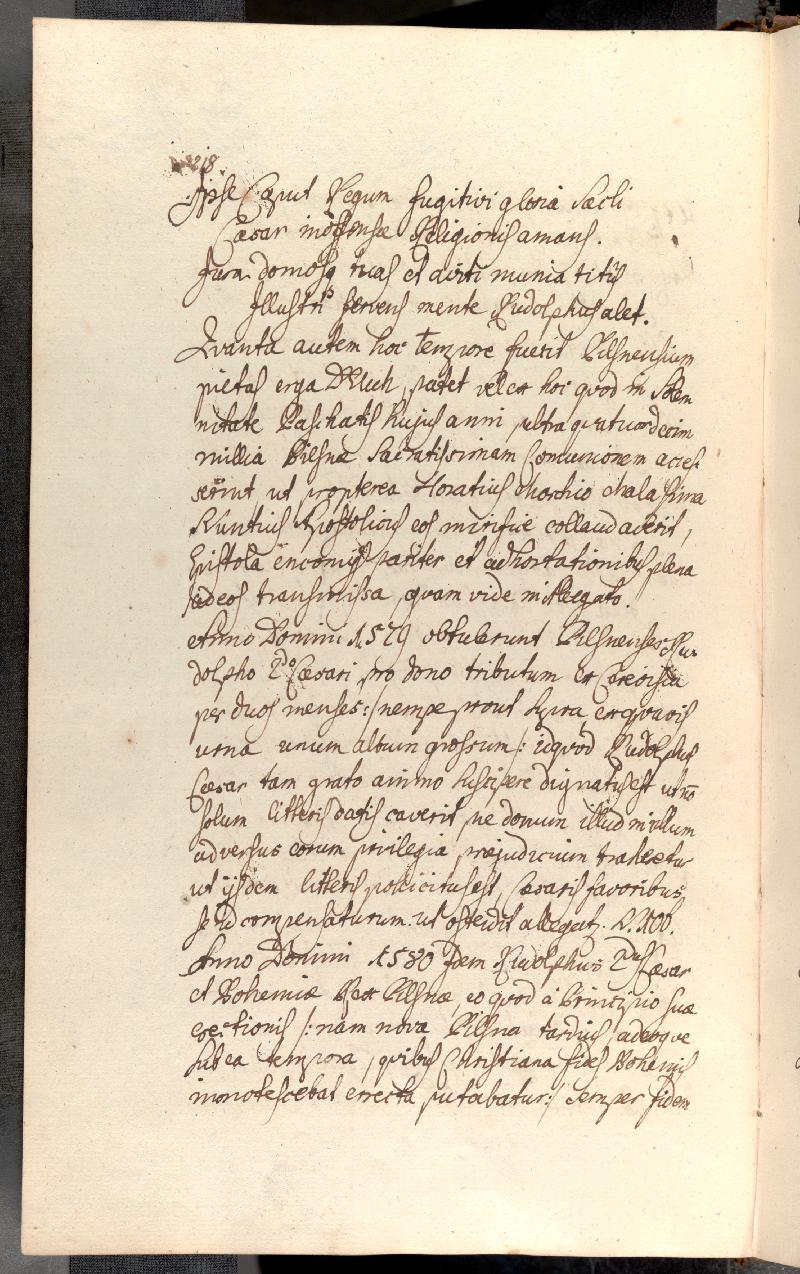 218.
Ipse Caput Regum fugitivi gloria Saecli
Caesar inoffensae Religionis amans.
Jura domosq tuas et aviti munia titij
Illustris fervens mente Rudolphus alet.
Quanta autem hoc tempore fuerit Pilsnensium
pietas erga DEUM, patet vel ex hoc quod in Solem
nitate Paschatis hujus anni ultra quatuordecim
millia Pilsnae Sacratissimam Comunionem acces
serint ut propterea Horatius Morchio Malaspina
Nuntius Apostolicus eos mirifice collaudaverit,
Epistola encomijs pariter et adhortationibus plena
ad eos transmissa, quam vide in Allegato.
Anno Domini 1579 obtulerunt Pilsnenses Ru
dolpho 2do Caesari pro dono tributum ex Cerevisia
per duos menses: /nempe prout supra, ex quavis
urna unum album grossum/: idquod Rudolphus
Caesar tam grato animo suscipere dignatus est ut no
solum litteris datis caverit, ne donum illud in ullum
adversus eorum privilegia praejudicium traheretur
ut ijsdem litteris pollicitus est, Caesareis favoribus
se id compensaturum. ut ostendit allegat.
Anno Domini 1580 Idem Rudolphus 2dus Caesar
et Bohemiae Rex Pilsnae, eo quod a Principio suae
erectionis /: nam nova Pilsna tardius, adeoque
sub ea tempora, quibus Christiana fides Bohemis
innotescebat errecta putabatur:/ semper fidem